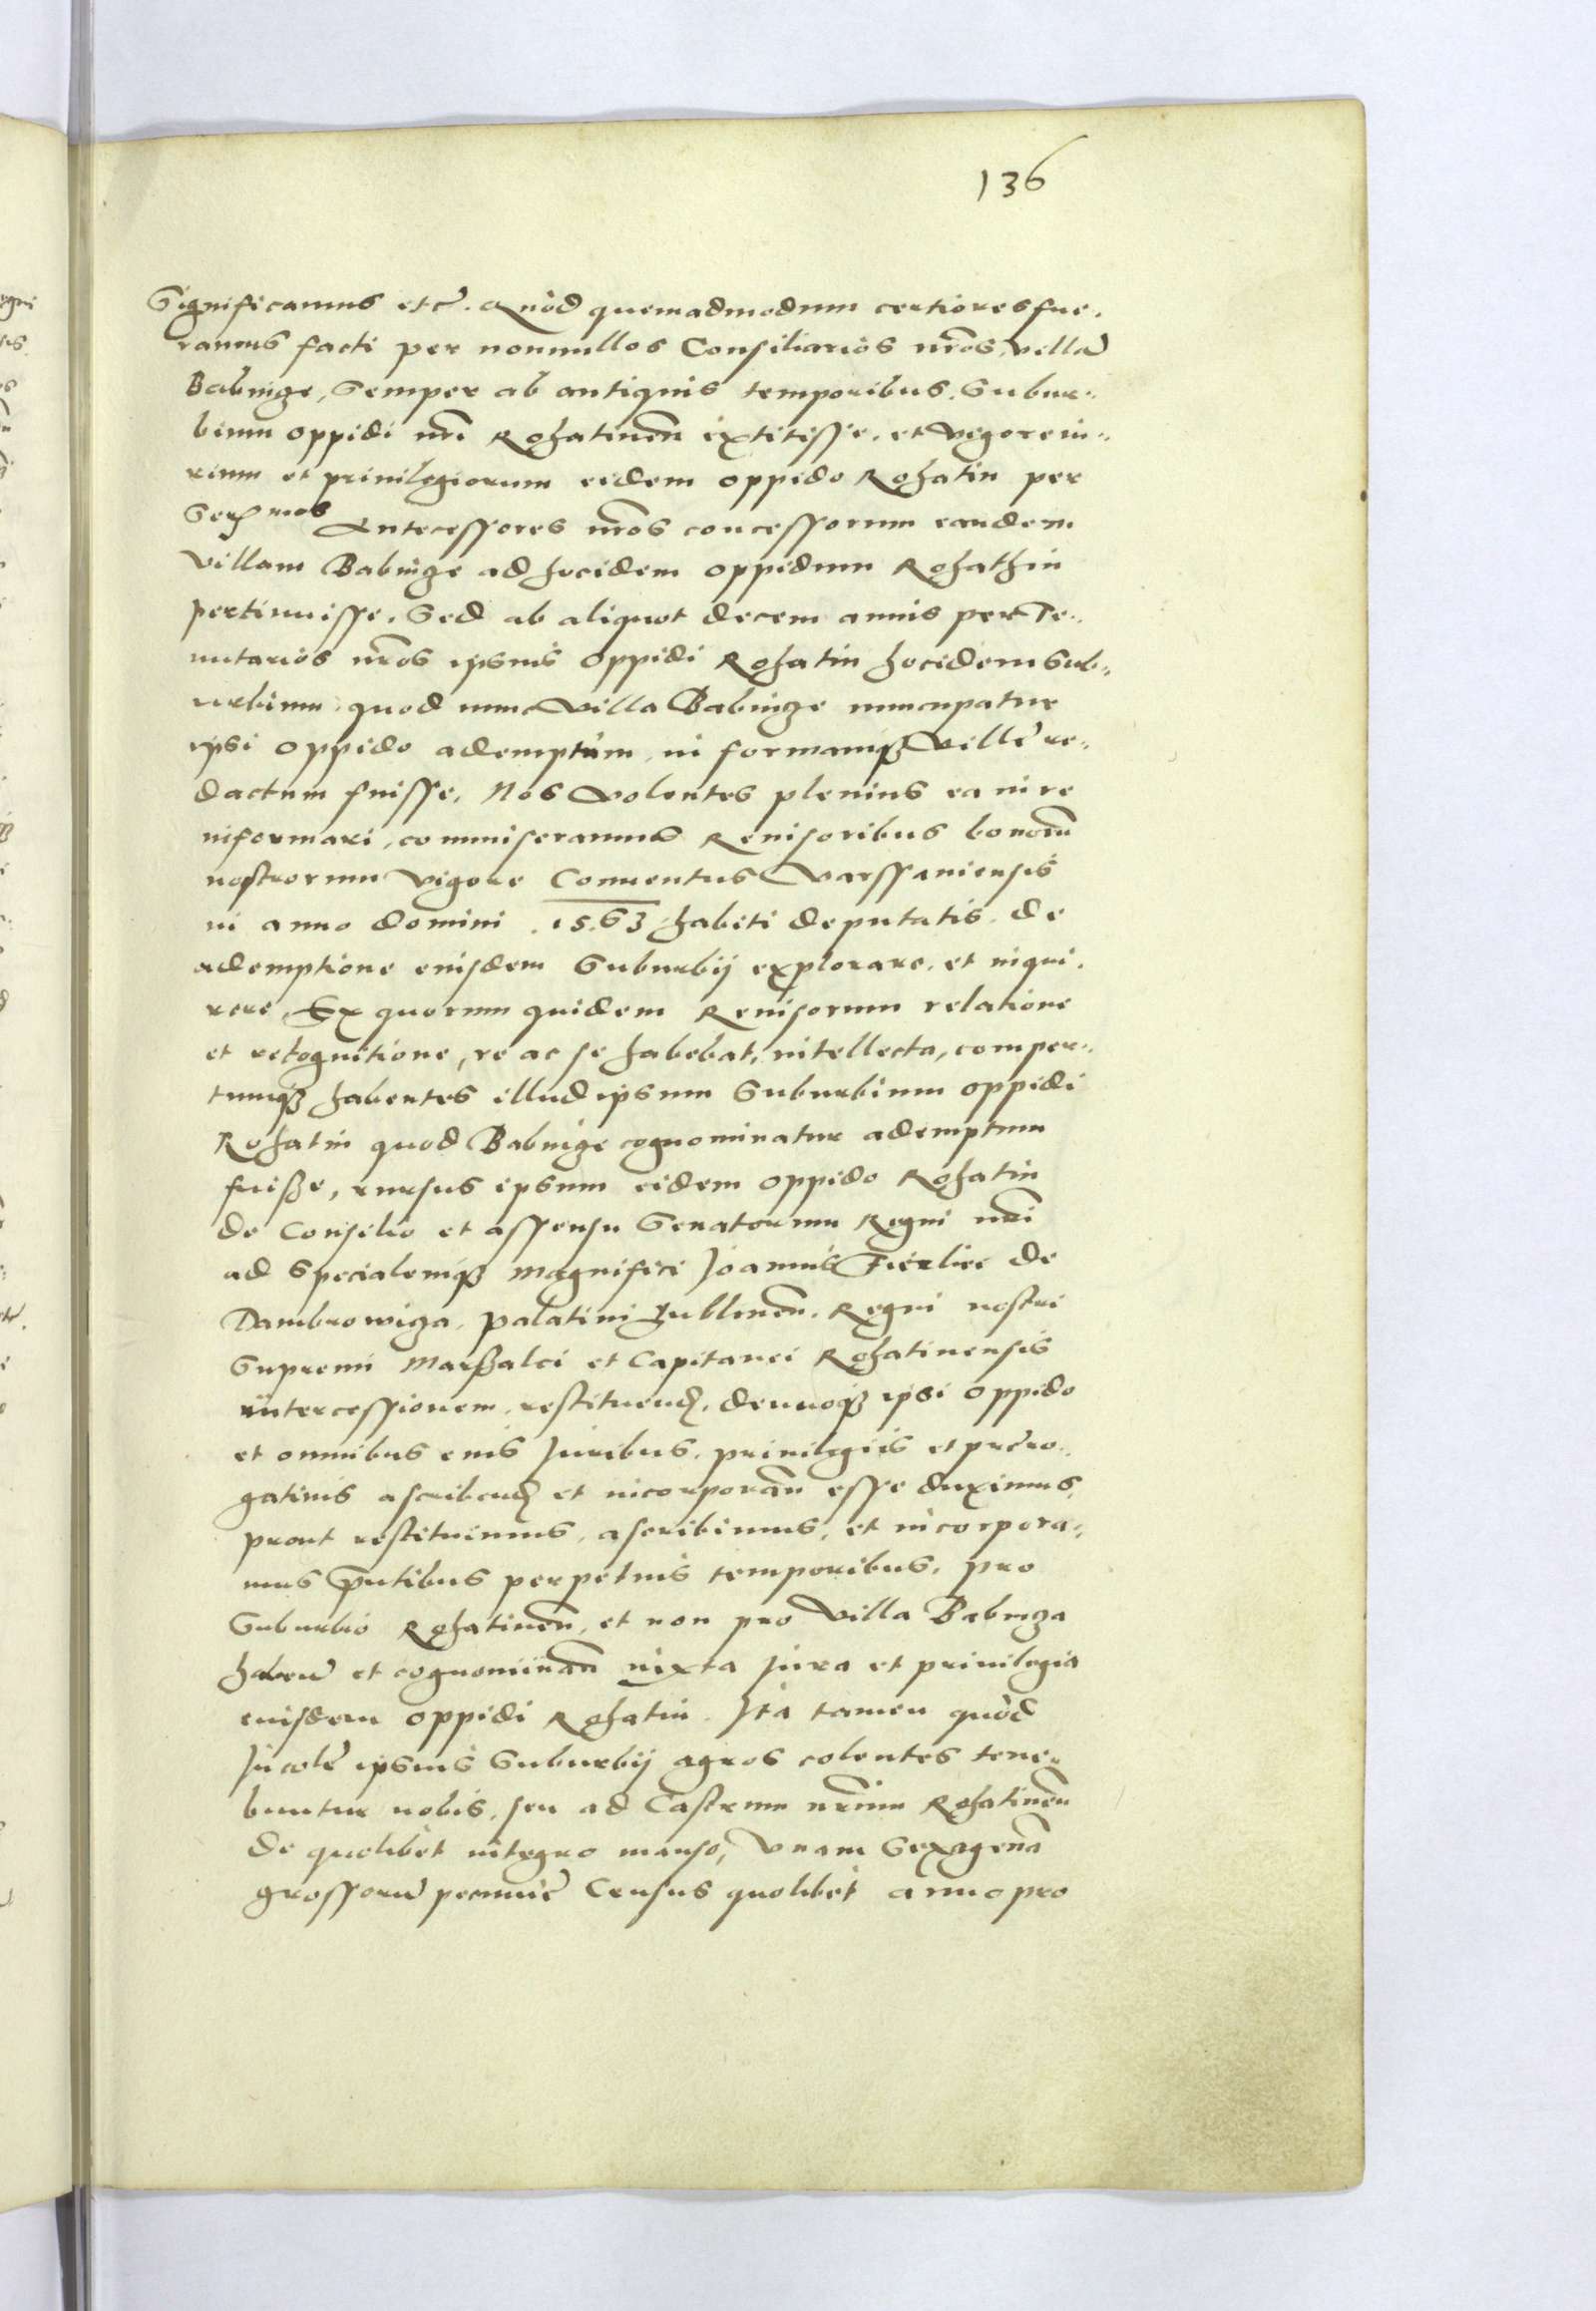 136
Significamus etc̃. Quòd quemadmodum certiores fue,
ramus facti per nonnullos Consiliarios nr̃os, villã
Babinze, Semper ab antiquis temporibus, Subur,,
bium oppidi nr̃i Rohatinen̄ extitisse, et vigore iu,,
rium et priuilegiorum eidem oppido Rohatin per
Ser^mos Antecessores nr̃os concessorum eandem
villam Babinze ad hocidem oppidum Rohathin
pertinuisse, Sed ab aliquot decem annis per Te,,
nutarios nr̃os ipsius oppidi Rohatin hocidem Sub,,
urbium quod nunc villa Babinze nuncupatur
ipsi oppido ademptùm, in formamq3 villẽ re,,
dactum fuisse, Nos volentes plenius ea in re
informari, commiseramus Reuisoribus bonorũ
nostrorum vigore Conuentus Varssauiensis
in anno domini .1563 habiti deputatis, de
ademptione eiusdem Suburbij explorare, et inqui,
rere, Ex quorum quidem Reuisorum relatione
et recognitione, re ac se habebat, intellecta, comper,,
tumq3 habentes illud ipsum Suburbium oppidi
Rohatin quod Babinze cognominatur ademptum
fuisse, rursus ipsum eidem oppido Rohatin
de Consilio et assensu Senatorum Regni nr̃i
ad Specialemq3 Magnifici Joannis Firliei de
Dambrowiza, palatini Lublinen̄, Regni nostri
Supremi Marssalci et Capitanei Rohatinensis
intercessionem, restituend, denuoq3 ipsi oppido
et omnibus eius Juribus, priuilegiis et prẽro,,
gatiuis ascribend et incorporan̄ esse duximus,
prout restituimus, ascribimus, et incorpora,,
mus p̃ntibus perpetuis temporibus, pro
Suburbio Rohatinen̄, et non pro villa Babinza
haben̄ et cognominan̄ iuxta Jura et priuilegia
eiusdem oppidi Rohatin. Ita tamen quòd
Incolẽ ipsius Suburbij agros colentes tene,,
buntur nobis, seu ad Castrum nr̃um Rohatinen̄
de quolibet integro manso, vnam Sexagenã
grossorũ pecuniẽ Census quolibet anno pro